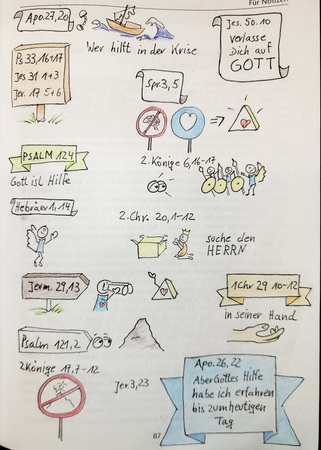 Für Notizen
Apo.27,20
Wer hilft in der Krise
Jes. 50.10
verlasse
Dich auf
GOTT
Ps 33,16+17
Jes 31 1+3
Jer. 17 5+6
Spr.3,5
PSALM 124
Gott ist Hilfe
2.Könige 6,16-17
Hebräer 1,14
2.Chr. 20,1-12
suche den
HERRN
Jerm. 29,13
1Chr 29 10-12
in seiner Hand
Psalm 121,2
2Könige 17,7-12
Jer.3,23
Apo.26,22
Aber Gottes Hilfe
habe ich erfahren
bis zum heutigen
Tag
87